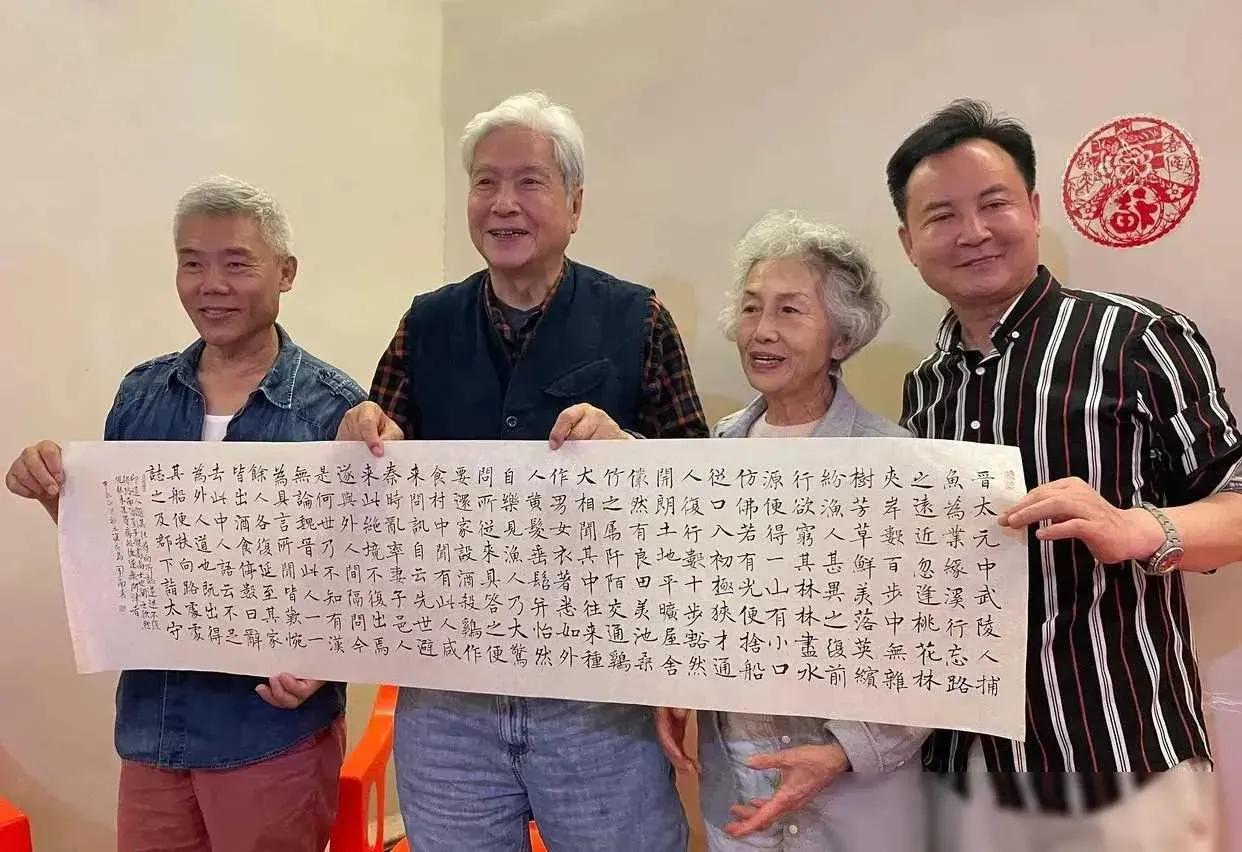 晉太元中武陵人捕
魚為業緣溪行忘路
之遠近忽逢桃花林
夾岸數百步中無雜
樹芳草鮮美落英繽
紛漁人甚異之復前
行欲窮其林林盡水
源便得一山有小口
仿佛若有光便捨船
從口入初極狹才通
人復行數十步豁然
開朗土地平曠屋舍
儼然有良田美池桑
竹之属阡陌交通鷄
犬相聞其中往来種
作男女衣著悉如外
人黄髮垂髫并怡然
自樂見漁人乃大驚
問所從来具答之便
要還家設酒殺鷄作
食村中聞有此人咸
来問訊自云先世避
秦時亂率妻子邑人
来此絶境不復出焉
遂與外人間隔問今
是何世乃不知有漢
無論魏晉此人一一
為具言所聞皆歎惋
餘人各復延至其家
皆出酒食停數日辭
去此中人語云不足
為外人道也既出得
其船便扶向路處處
誌之及郡下詣太守
福